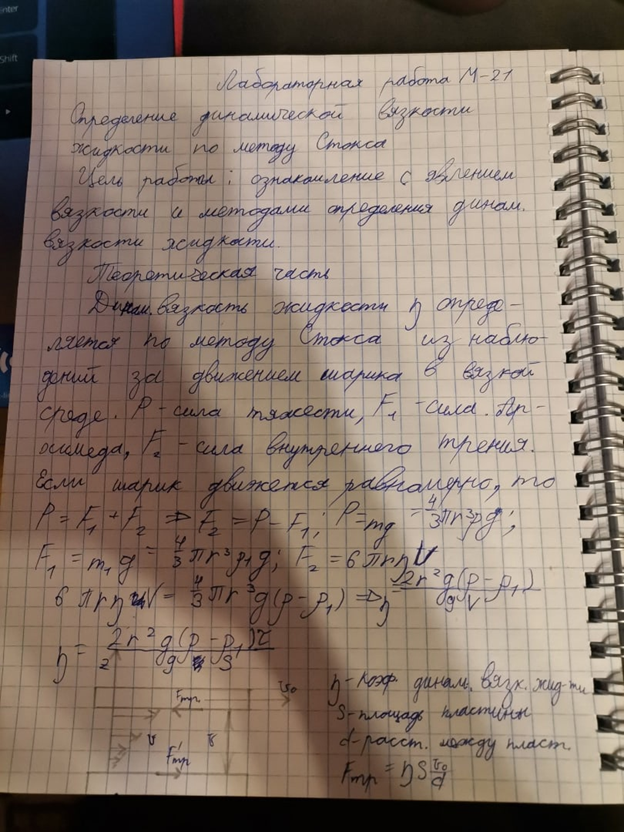 Enter
Shift
Лабораторная работа М-21
Определение динамической вязкости
жидкости по методу Стокса
Цель работы: ознакомление с явлением
вязкости и методами определения динам.
вязкости жидкости.
Теоретическая часть
Динам. вязкость жидкости η опреде-
ляется по методу Стокса из наблю-
дений за движением шарика в вязкой
среде. P - сила тяжести, F₁ - сила Ар-
химеда, F₂ - сила внутреннего трения.
Если шарик движется равномерно, то
P = F₁ + F₂ ⇒ F₂ = P - F₁; P = mg = 4/3 πr³ρg;
F₁ = m₁g = 4/3 πr³ρ₁g; F₂ = 6πrηV
6πrηV = 4/3 πr³g(ρ-ρ₁) ⇒ η = 2r²g(ρ-ρ₁)/9V
η = 2r²g(ρ-ρ₁)τ/9S
z
Fтр.
v₀
v
F'тр
η - коэф. динам. вязк. жид-ти
S - площадь пластины
d - расст. между пласт.
Fтр = ηS v₀/d